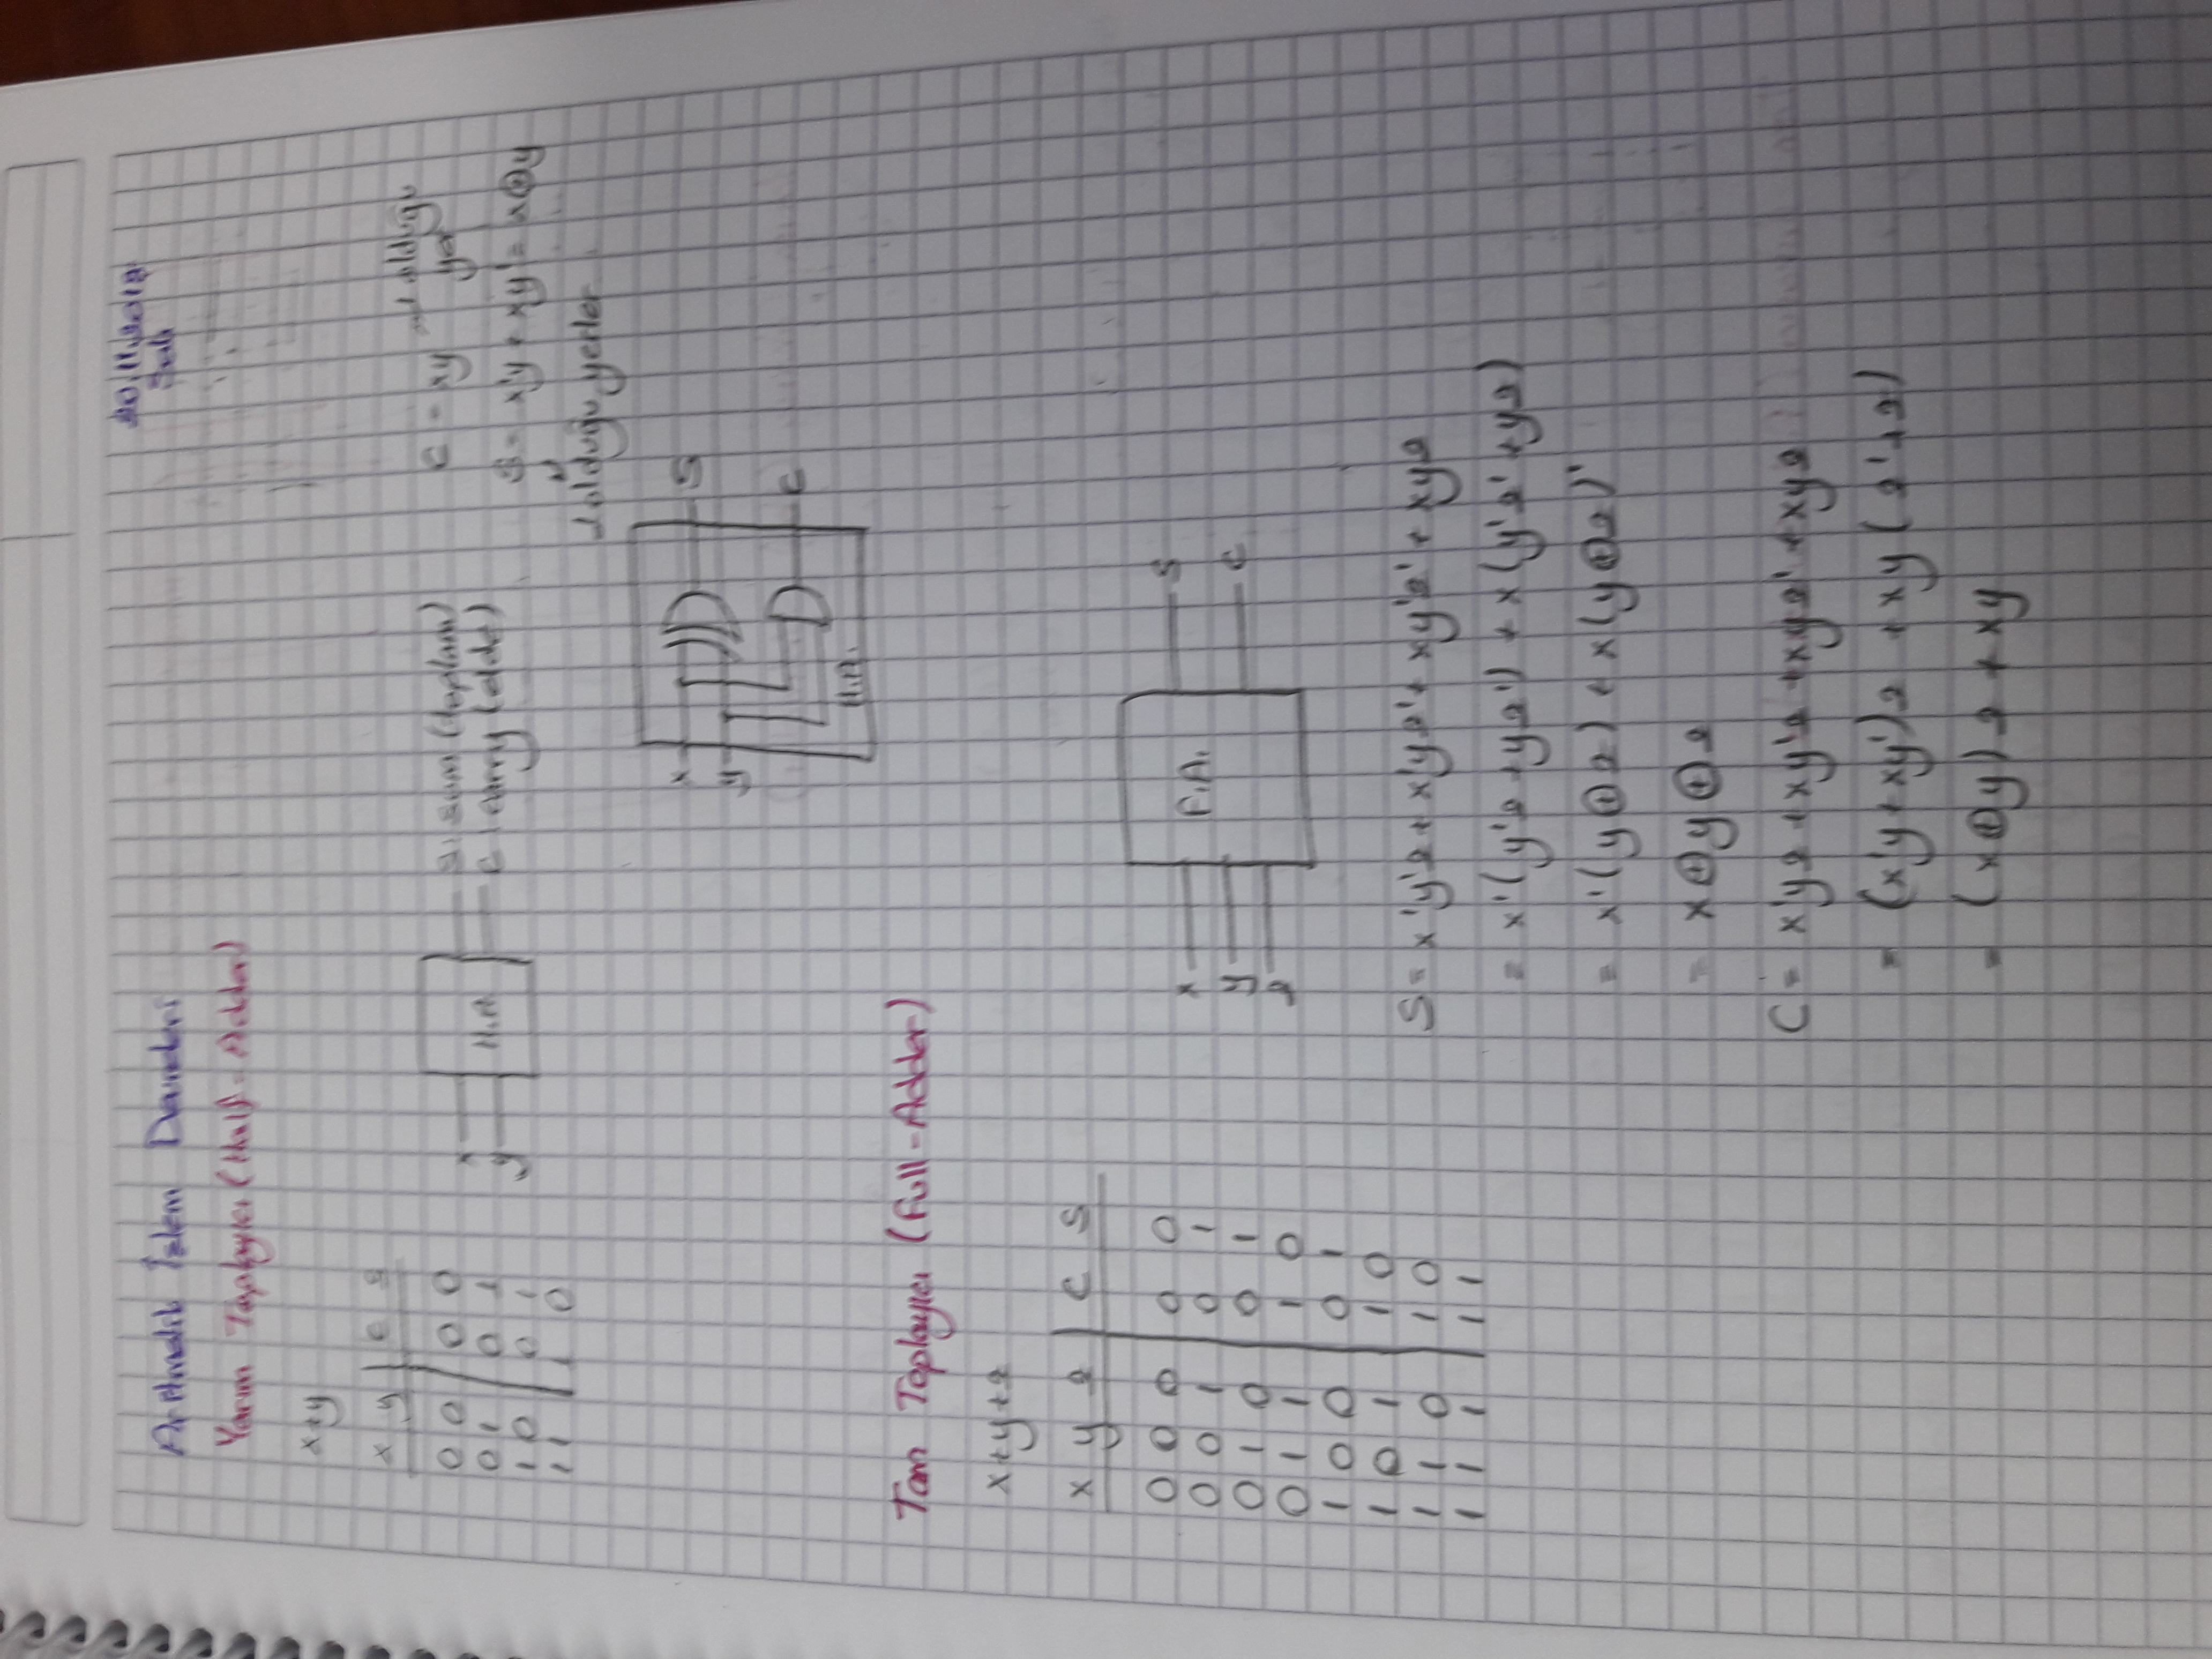 20.11.2018
Salı
Aritmatik İşlem Devreleri
Yarım Toplayıcı (Half-Adder)
x+y
x y | C S
0 0 | 0 0
0 1 | 0 1
1 0 | 0 1
1 1 | 1 0
x
y
H.A
S: sum (toplam)
C: carry (elde)
C = xy → 1 olduğu
yer
S = x'y + xy' = x⊕y
1 olduğu yerler
x
y
S
C
H.A.
Tam Toplayıcı (Full-Adder)
x+y+z
x y z | C S
0 0 0 | 0 0
0 0 1 | 0 1
0 1 0 | 0 1
0 1 1 | 1 0
1 0 0 | 0 1
1 0 1 | 1 0
1 1 0 | 1 0
1 1 1 | 1 1
x
y
z
F.A.
S
C
S = x'y'z + x'yz' + xy'z' + xyz
= x'(y'z + yz') + x(y'z' + yz)
= x'(y⊕z) + x(y⊕z)'
= x⊕y⊕z
C = x'yz + xy'z + xyz' + xyz
= (x'y + xy')z + xy(z'+z)
= (x⊕y)z + xy